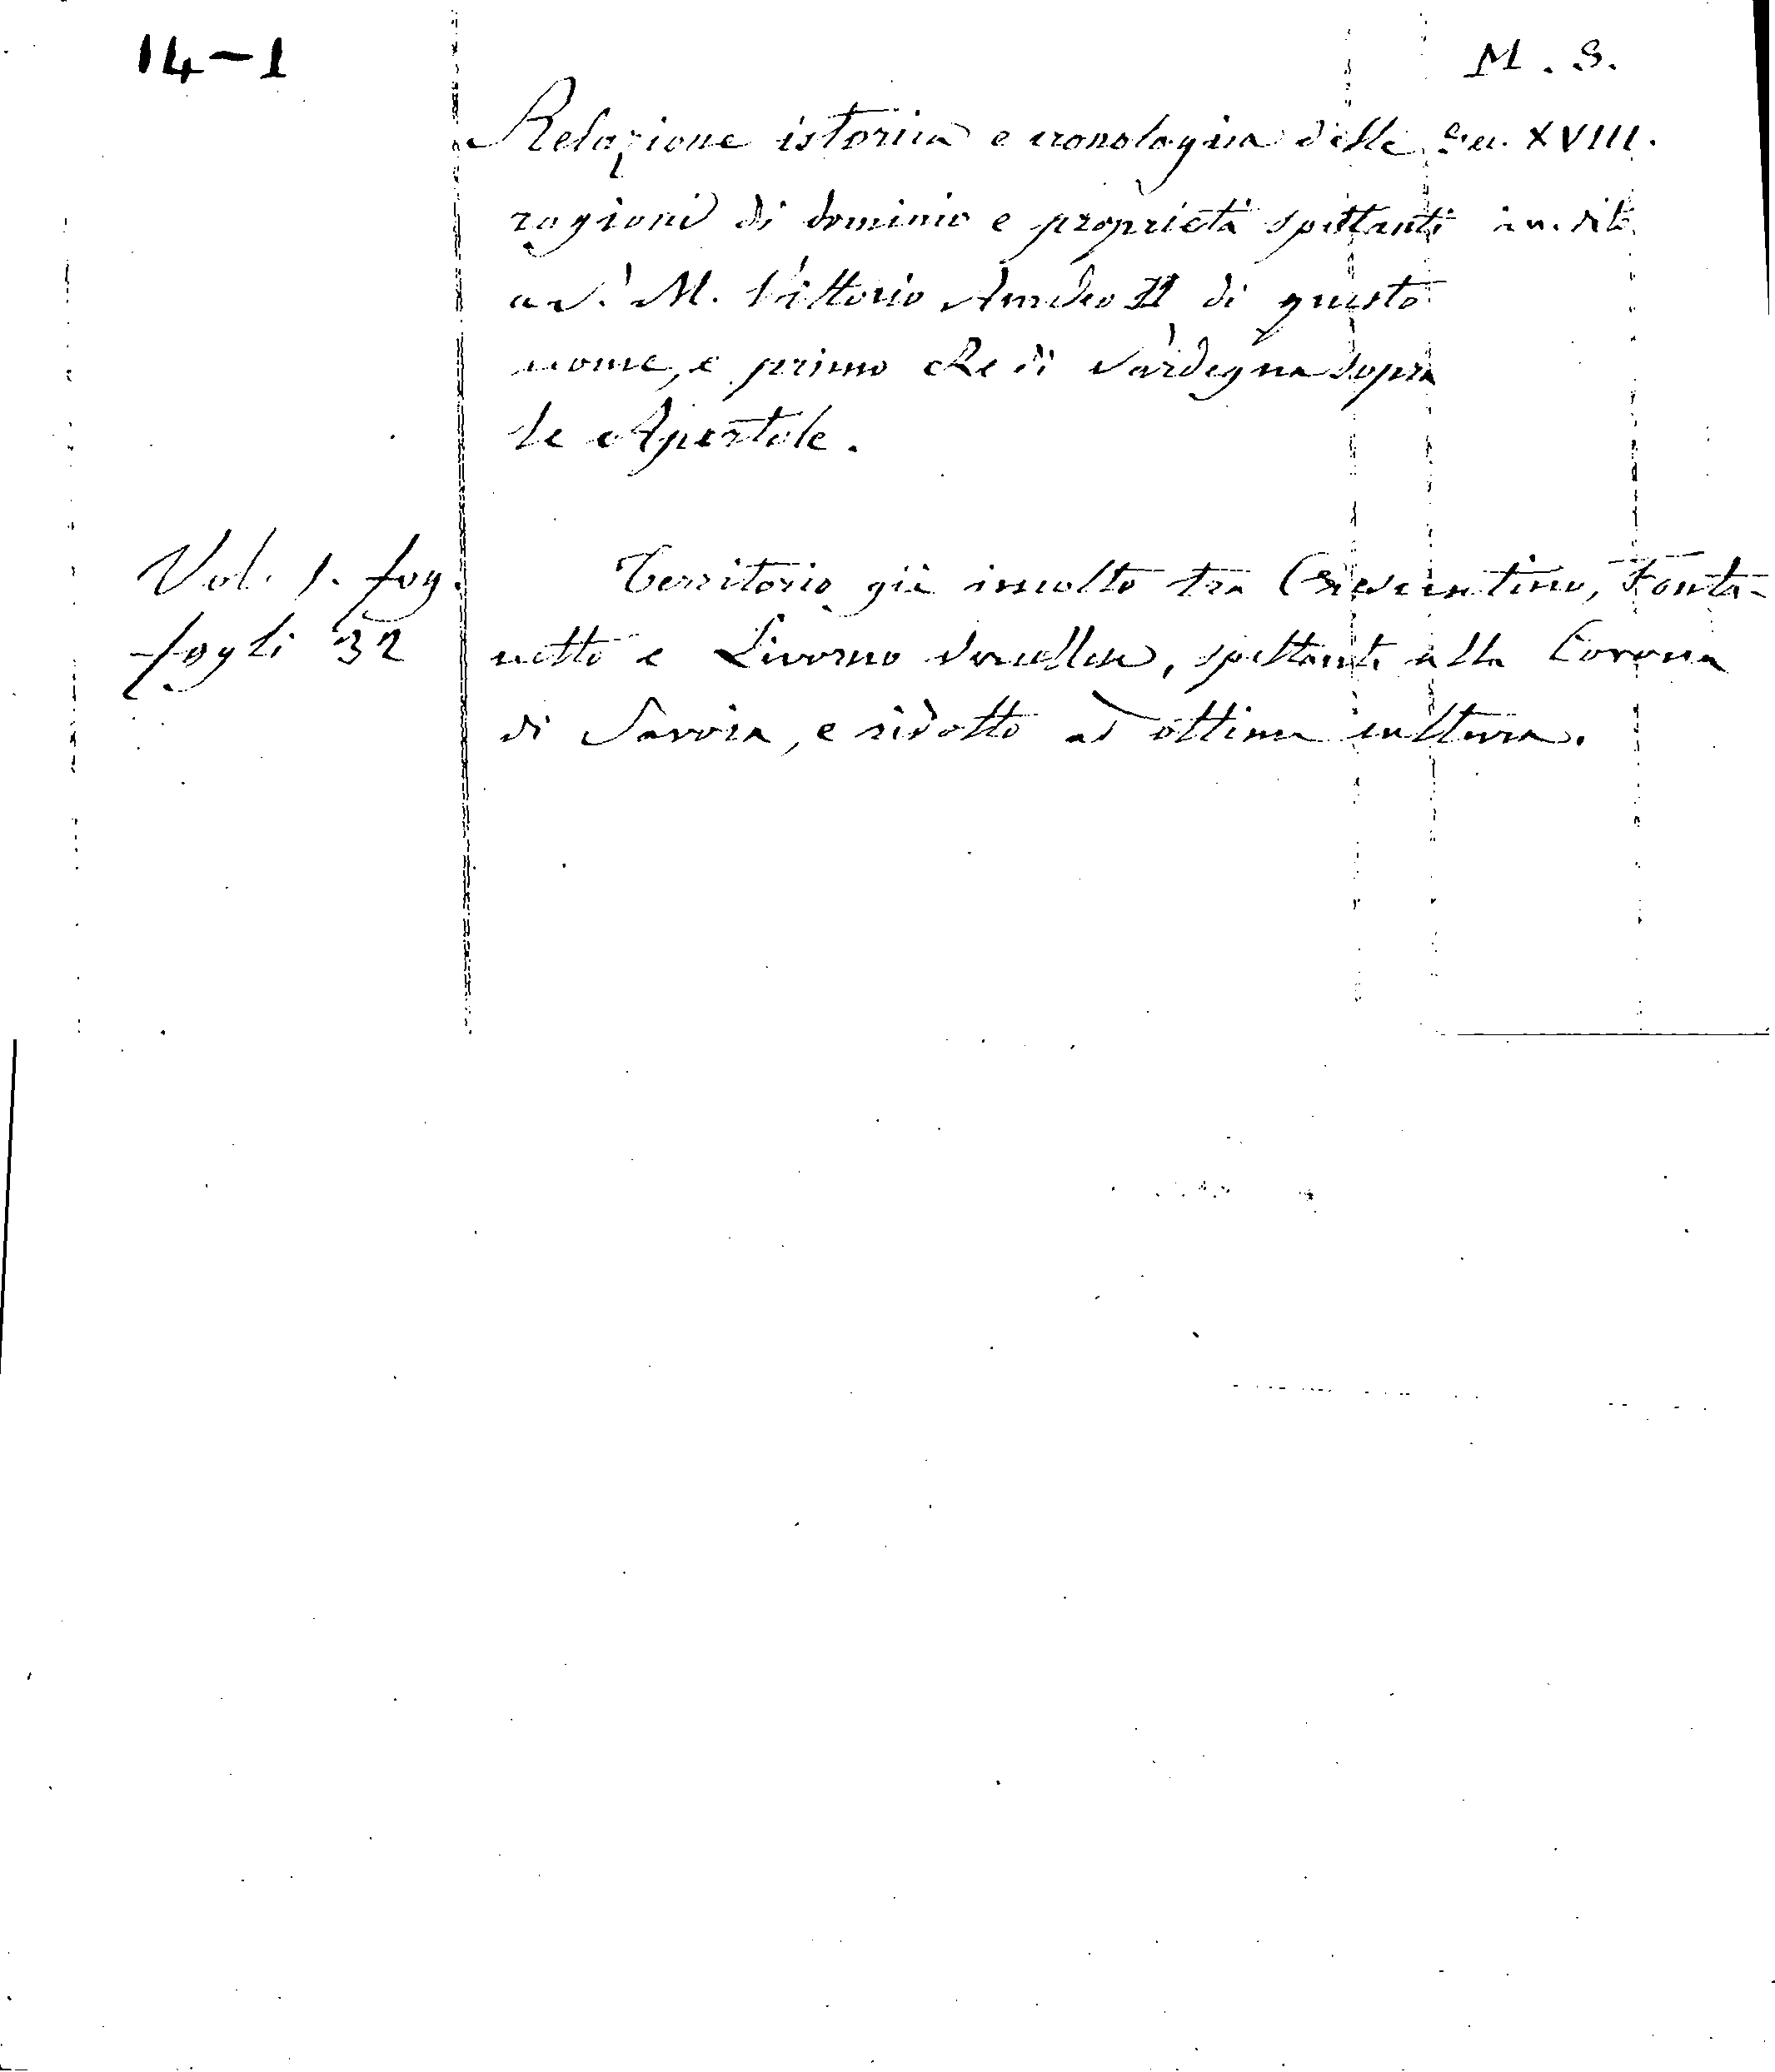 14-1
M. S.
Relazione istorica e cronologica delle Sec. XVIII.
ragioni di dominio e proprietà spettanti inedito
a S. M. Vittorio Amedeo II di questo
nome, e primo Re di Sardegna sopra
le Apertole.
Vol. 1. fog. Territorio già incolto tra Crescentino, Fonta-
fogli 32 netto e Livorno Vercellese, spettante alla Corona
di Savoia, e ridotto ad ottima cultura.